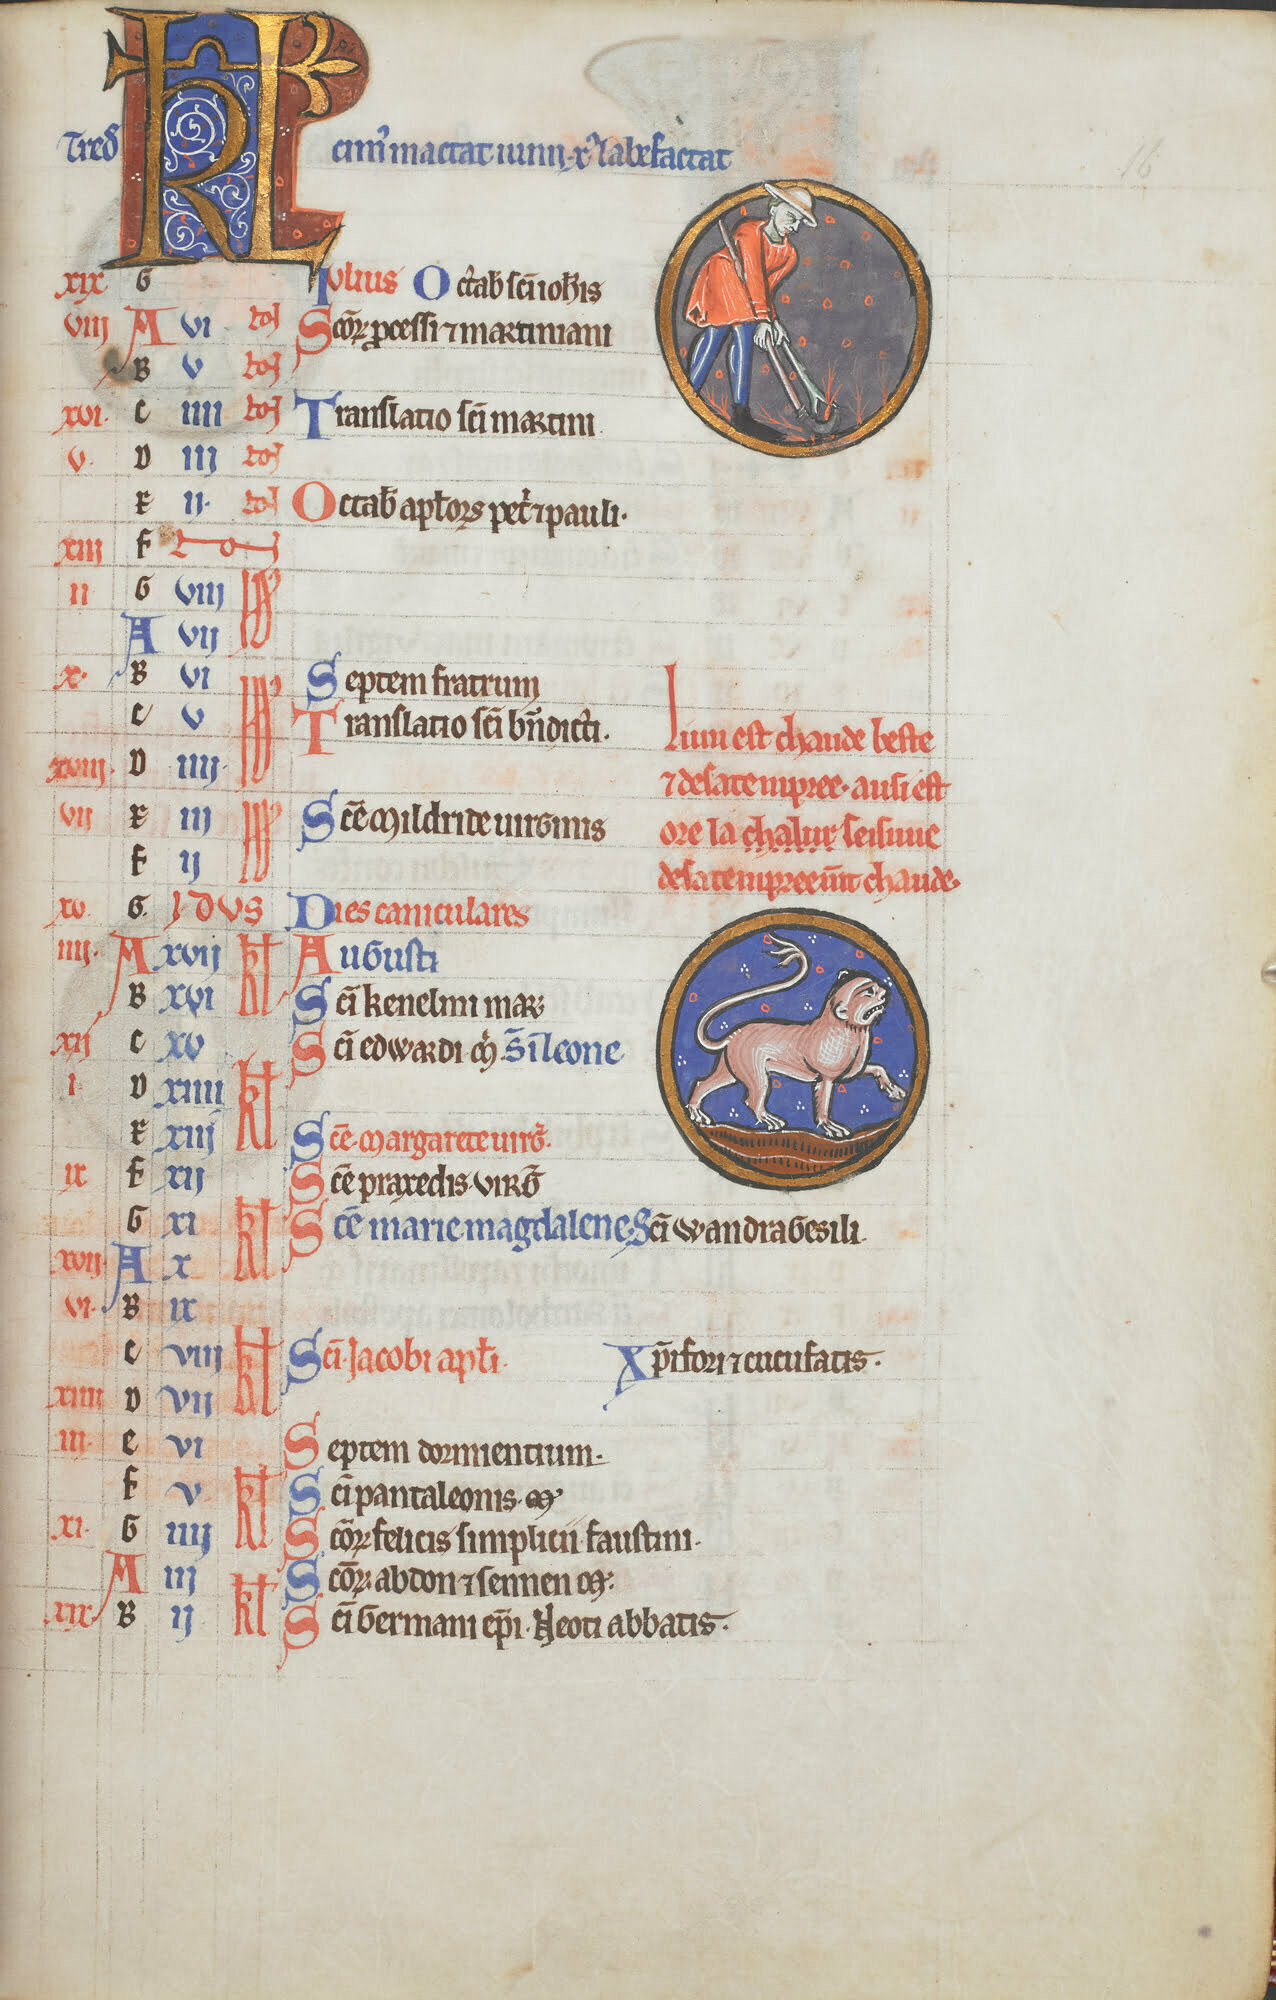 KL
Tred cim' mactat iulii x' labefactat
16
xix G Iulius Octab sc̄i ioh̄is
viii A vi No Scōꝝ ꝓcessi ⁊ martiniani
B v No
xvi. C iiii No Translatio sc̄i martini
v. D iii No
E ii. No Octab̄ apl̄oꝝ pet' ⁊ pauli.
xiii F No
ii G viii Id
A vii
x. B vi Id Septem fratrum
C v Translatio sc̄i bn̄dicti.
xviii. D iiii.
vii E iii Id Sc̄e Mildride uirginis
F ii
xv. G. Idus Dies caniculares
iiii. A xvii kl Augusti
B xvi Sc̄i kenelmi mar
xii C xv Sc̄i edwardi m̄ S' in leone
i. D xiiii kl
E xiii Sc̄e margarete uirḡ.
ix F xii Sc̄e praxedis virḡ
G xi kl Sc̄e marie magdalene. Sc̄i wandragesili.
xvii. A x
vi. B ix
C viii kl Sc̄i Jacobi apl̄i. Xp̄ifori ⁊ cucufatis.
xiiii D vii
iii. E vi Septem dormientium.
F v kl Sc̄i pantaleonis. m̄
xi. G iiii Scōꝝ felicis simplicii faustini.
A iii kl Scōꝝ abdon ⁊ sennen m̄.
xix B ii Sc̄i Germani ep̄i. Neoti abbatis.
Lium est chaude beste
⁊ desatempree. ausi est
ore la chalur seisune
desatempreemt chaude.